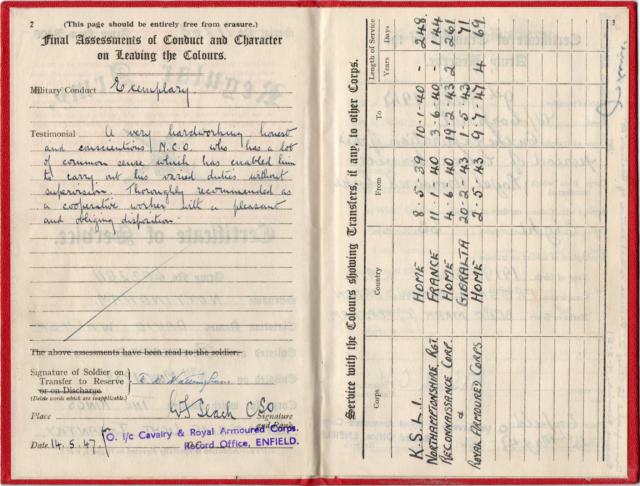 2
(This page should be entirely free from erasure.)
Final Assessments of Conduct and Character
on Leaving the Colours.
Military Conduct Exemplary
Testimonial A very hardworking honest
and conscientious N.C.O. who has a lot
of common sense which has enabled him
to carry out his varied duties without
supervision. Thoroughly recommended as
a cooperative worker with a pleasant
and obliging disposition
The above assessments have been read to the soldier.
Signature of Soldier on
Transfer to Reserve
or on Discharge
(Delete words which are inapplicable.)
Place
Signature
and Rank
Date 14.5.47
O. i/c Cavalry & Royal Armoured Corps.
Record Office, ENFIELD.
3
Service with the Colours showing Transfers, if any, to other Corps.
Corps Country From To Length of Service
Years Days
K.S.L.I. HOME 8-5-39 10-1-40 - 248
NORTHAMPTONSHIRE RGT. FRANCE 11-1-40 3-6-40 144
RECONNAISSANCE CORP. HOME 4-6-40 19-2-43 2 261
& GIBRALTA 20-2-43 1-5-43 71
ROYAL ARMOURED CORPS HOME 2-5-43 9-7-47 4 69